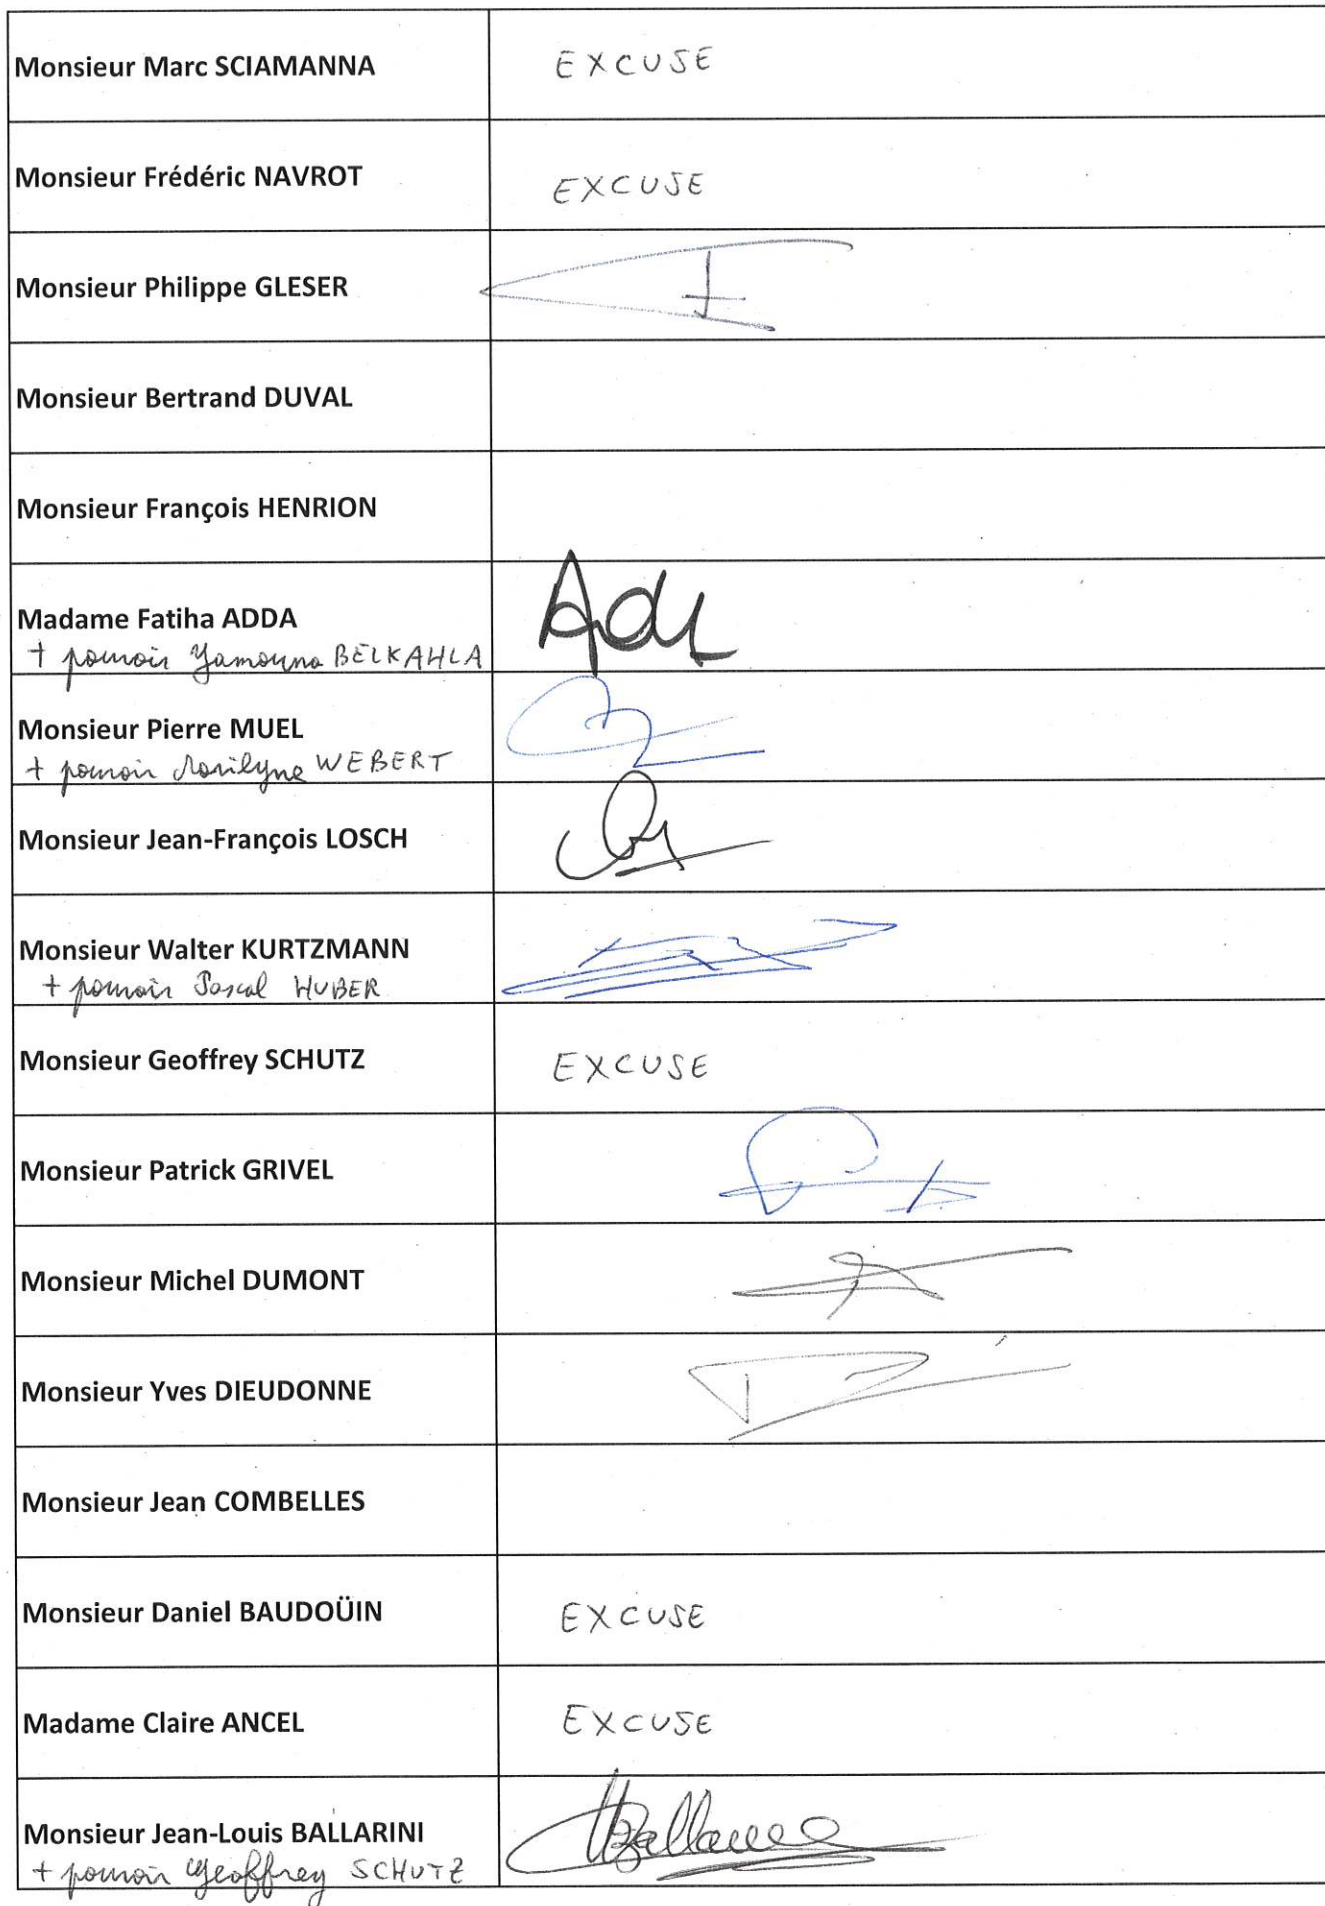 Monsieur Marc SCIAMANNA
EXCUSE
Monsieur Frédéric NAVROT
EXCUSE
Monsieur Philippe GLESER
Monsieur Bertrand DUVAL
Monsieur François HENRION
Madame Fatiha ADDA
+ pouvoir Yamouna BELKAHLA
Monsieur Pierre MUEL
+ pouvoir Marilyne WEBERT
Monsieur Jean-François LOSCH
Monsieur Walter KURTZMANN
+ pouvoir Pascal HUBER
Monsieur Geoffrey SCHUTZ
EXCUSE
Monsieur Patrick GRIVEL
Monsieur Michel DUMONT
Monsieur Yves DIEUDONNE
Monsieur Jean COMBELLES
Monsieur Daniel BAUDOÜIN
EXCUSE
Madame Claire ANCEL
EXCUSE
Monsieur Jean-Louis BALLARINI
+ pouvoir Geoffrey SCHUTZ